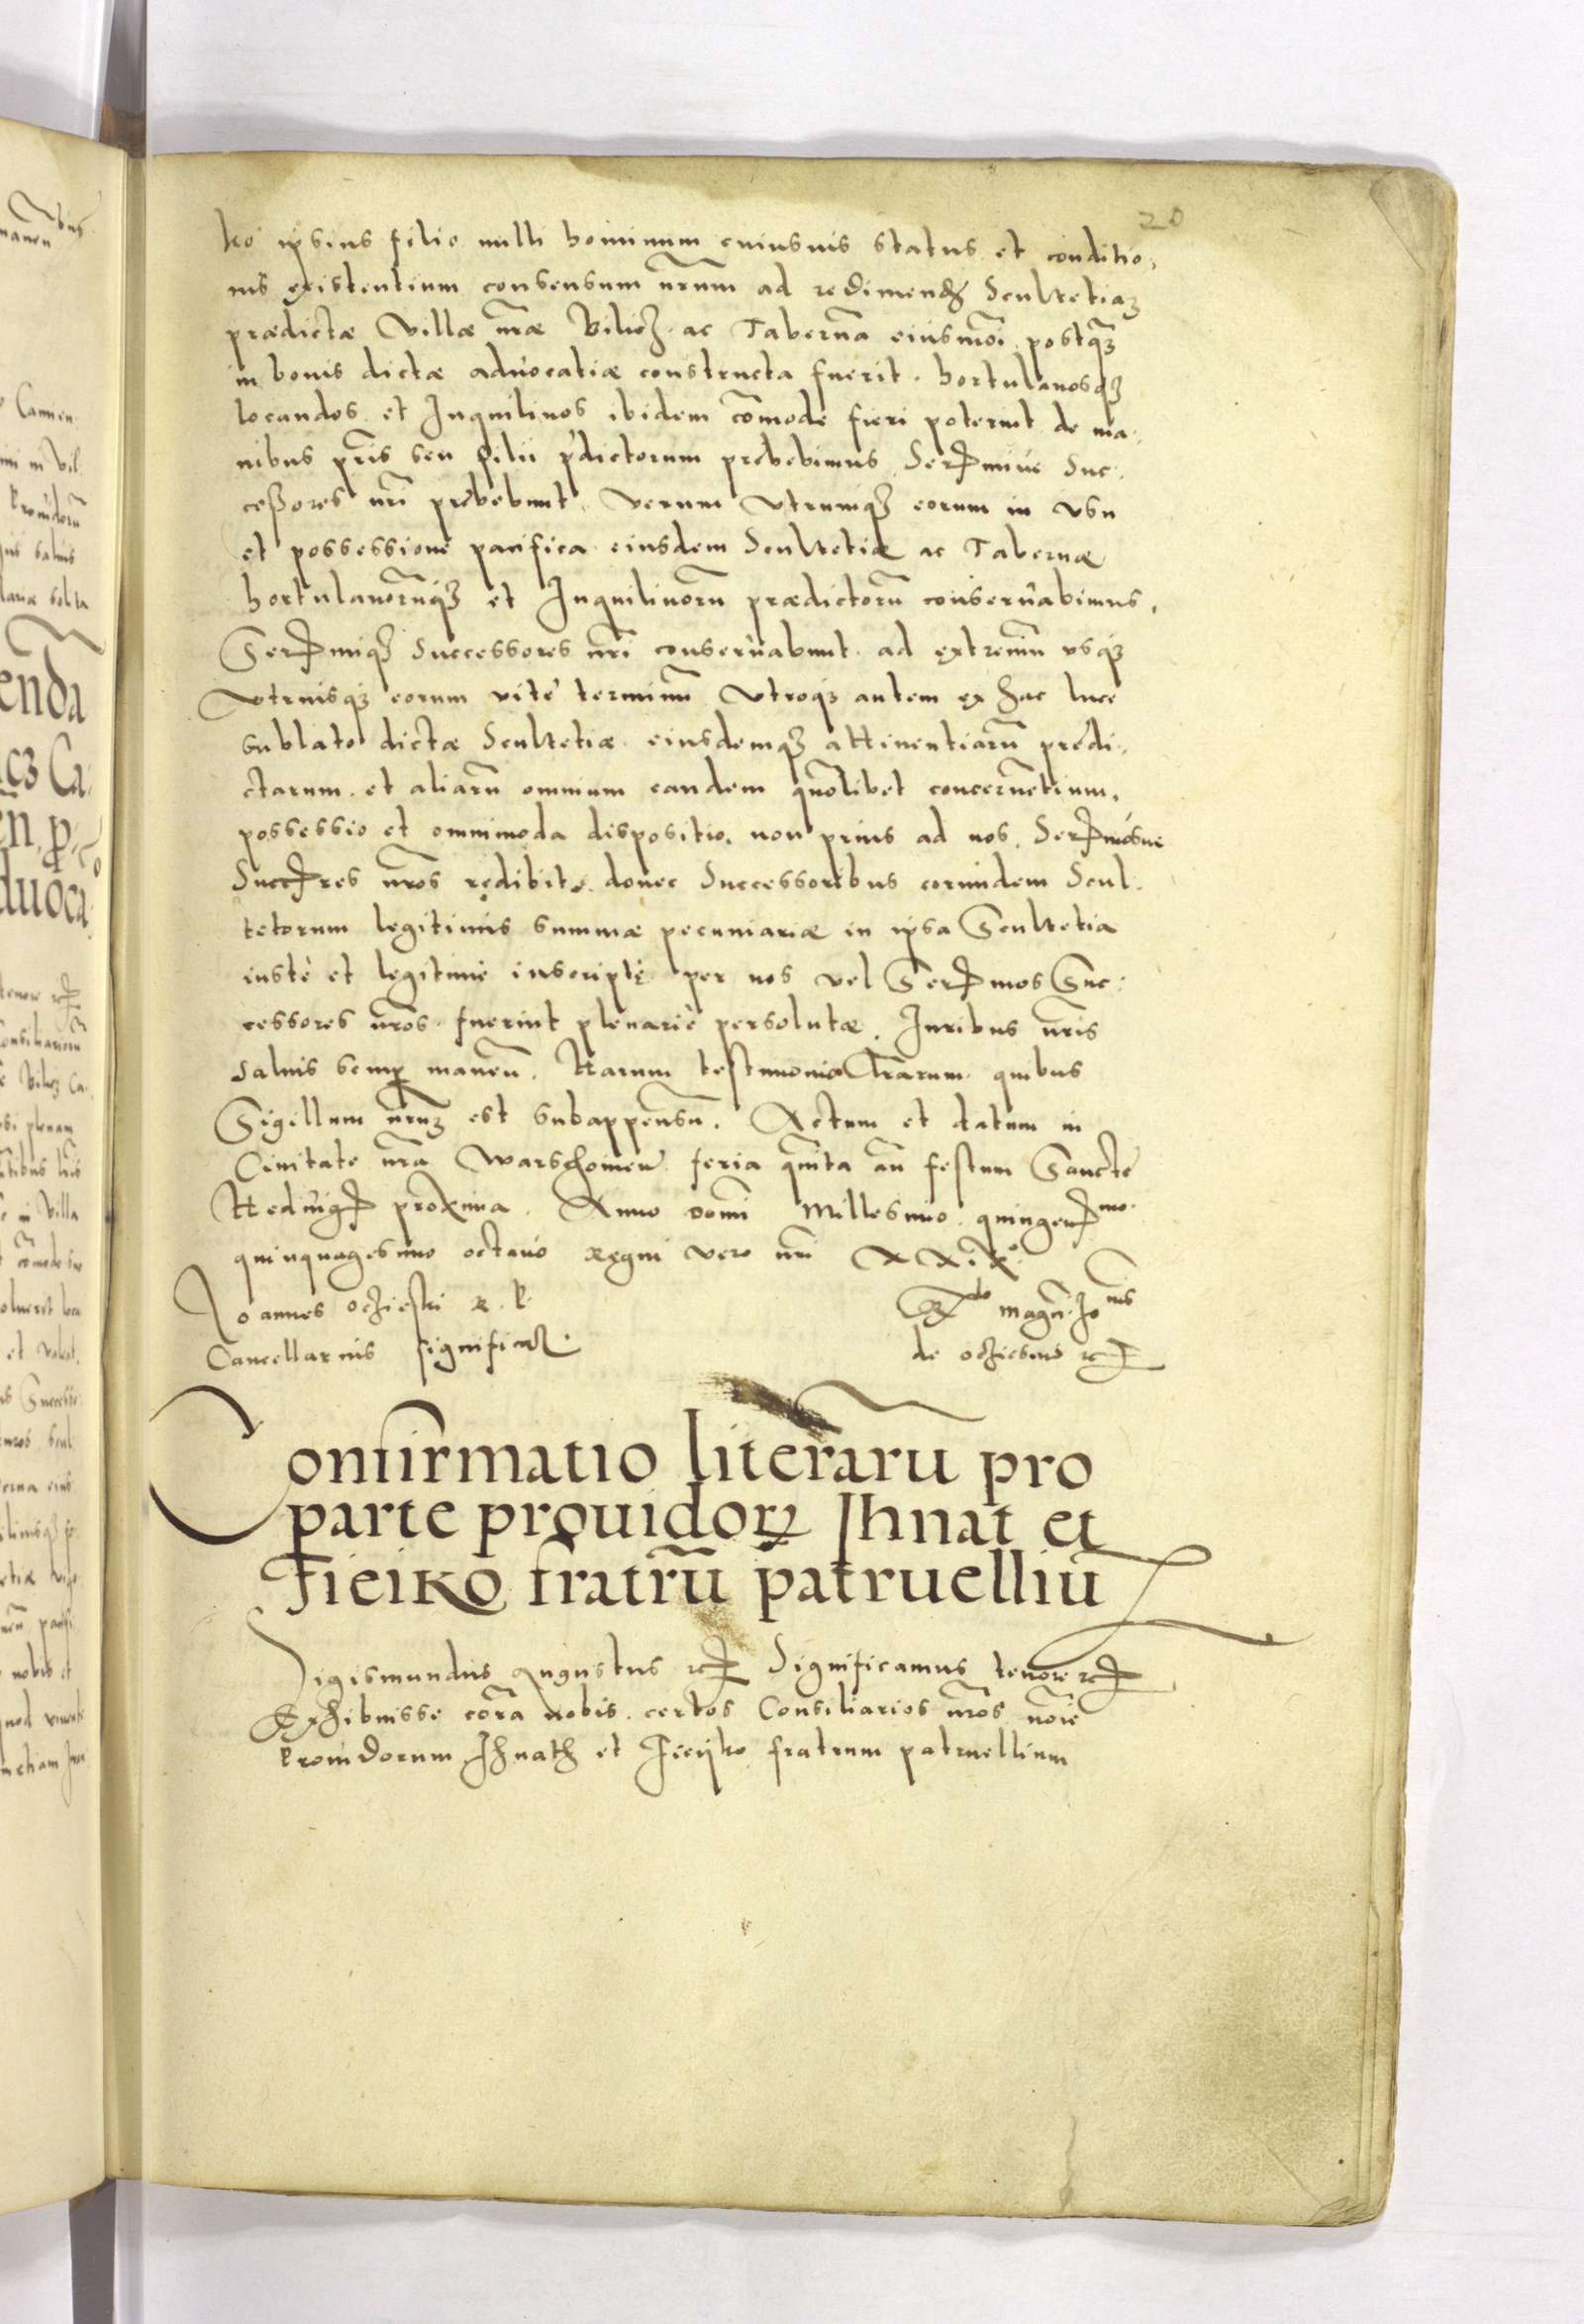 20
ko ipsius filio nulli hominum cuiusuis status et conditio,
nis existentium consensum nr̃um ad redimend̃ Scultetiaꝫ
prædictæ Villæ nr̃æ Bilicz ac Taberna eiusmõi postqꝫ
in bonis dictæ aduocatiæ constructa fuerit. hortulanosqꝫ
locandos et Inquilinos ibidem cõmode fieri poterint de ma,
nibus pr̃is seu filii p̃dictorum prebebimus Ser̃miue Suc,
ceßores nr̃i prebebunt, verum vtrumqꝫ eorum in vsu
et possessione pacifica eiusdem Scultetiæ ac Tabernæ
hortulanorũqꝫ et Inquilinorũ prædictorũ conseruabimus,
Ser̃miqꝫ Successores nr̃i conseruabunt ad extremũ vsqꝫ
vtriusqꝫ eorum vite terminũ vtroqꝫ autem ex hac luce
sublato dictæ Scultetiæ eiusdemqꝫ attinentiarũ predi,
ctarum et aliarũ omnium eandem quõlibet concernẽtium,
possessio et omnimoda dispositio, non prius ad nos, Ser̃mosue
Succ̃res nr̃os redibit, donec Successoribus eorundem Scul,
tetorum legitimis summæ pecuniariæ in ipsa Scultetia
iuste et legitime inscripte per nos vel Ser̃mos Suc,
cessores nr̃os fuerint plenarie persolutæ. Iuribus nr̃is
saluis semꝑ maneñ. Harum testimonio lr̃arum quibus
Sigillum nr̃uꝫ est subappensũ. Actum et datum in
Ciuitate nr̃a Warschouieñ feria quĩta añ festum Sancte
Heduigis proxima. Anno domĩ Millesimo quingeñmo
quinquagesimo octauo regni vero nr̃i XXIX°
Ioannes oczieski R. P. Re͠do magn̄. Jonis
Cancellarius significat. de oczieschino etc̃
Confirmatio literarũ pro
parte prouidorꝝ Ihnat et
Fieiko fratrũ patruelliũ
Sigismundus Augustus etc̃ Significamus tenore etc̃
Exhibuisse corã nobis certos Consiliarios nr̃os noĩe
Prouidorum Ihnath et Fieyko fratrum patruellium